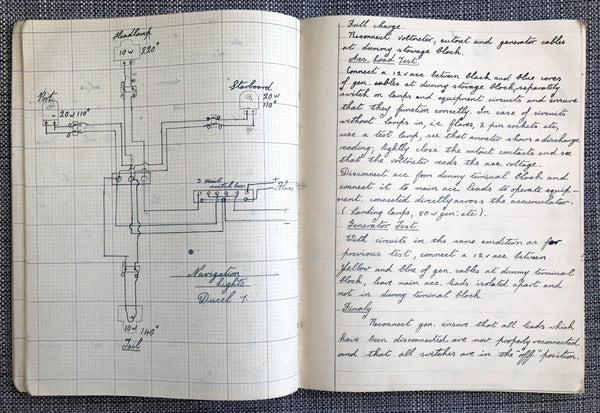 Headlamp
10w 220°
Port
20w 110°
Starboard
20w
110°
3 unit
switch box
+
Flares
Navigation
Lights
Ducel 1
10w 140°
Tail
Full charge.
Reconnect voltmeter, cutout and generator cables
at dummy storage block.
Acc Load Test
Connect a 12v acc between black and blue cores
of gen. cables at dummy storage block, separately
switch on lamps and equipment circuits and ensure
that they function correctly. In case of circuits
without lamps in, i.e. flares, 2 pin sockets etc,
use a test lamp, see that ammeter shows a discharge
reading; lightly close the cutout contacts and see
that the voltmeter reads the acc. voltage.
Disconnect acc from dummy terminal block and
connect it to main acc. leads to operate equip-
ment. connected directly across the accumulator.
(landing lamps, 80w gen: etc).
Generator Test
With circuits in the same condition as for
previous test, connect a 12v acc between
Yellow and blue of gen. cables at dummy terminal
block, leave main acc leads isolated apart and
not in dummy terminal block.
Finaly
Reconnect gen. ensure that all leads which
have been disconnected are now properly reconnected
and that all switches are in the "off" position.